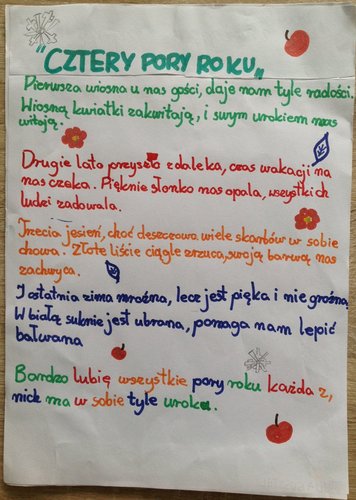 "CZTERY PORY ROKU"
Pierwsza wiosna u nas gości, daje nam tyle radości.
Wiosną kwiatki zakwitają, i swym urokiem nas
witają.
Drugie lato przyszło z daleka, czas wakacji na
nas czeka. Pięknie słonko nas opala, wszystkich
ludzi zadowala.
Trzecia jesień, choć deszczowa wiele skarbów w sobie
chowa. Złote liście ciągle zrzuca, swoją barwą nas
zachwyca.
I ostatnia zima mroźna, lecz jest pięka i nie groźna
W białą suknie jest ubrana, pomaga nam lepić
bałwana
Bardzo lubię wszystkie pory roku każda z,
nich ma w sobie tyle uroku.